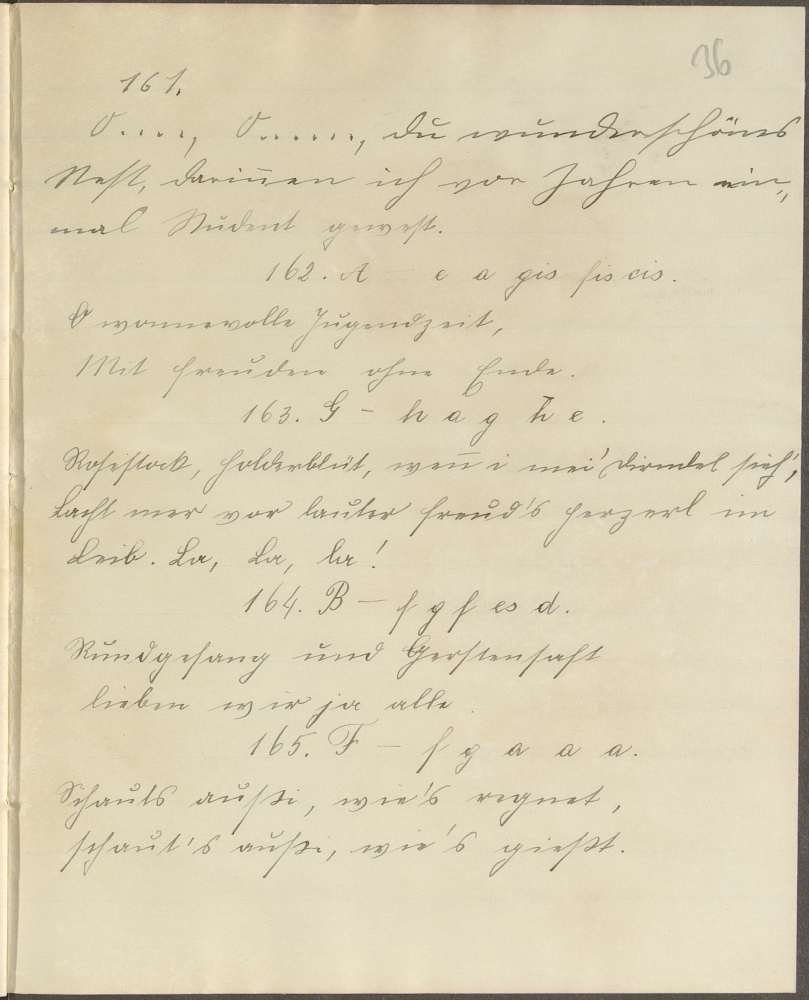 36
161.
O...., O......, du wunderschönes
Nest, darin̄en ich vor Jahren ein-
mal Student gewest.
162. A e a gis fis cis.
O wonnevolle Jugendzeit,
Mit Freuden ohne Ende.
163. G - h a g h e.
Rosestock, Holderblüt, wen̄ i mei' Dirndel sieh',
Lacht mer vor lauter Freud's Herzerl im
Leib. La, La, la!
164. B - f g f es d.
Rundgesang und Gerstensaft
lieben wir ja alle.
165. F - f g a a a.
Schauts außi, wie's regnet,
schaut's außi, wie's gießt.